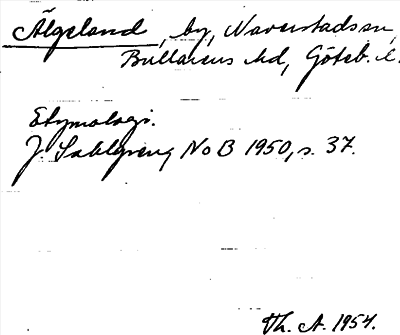 Älgeland, by, Naverstads sn,
Bullarens hd, Göteb. l.
Etymologi.
J. Sahlgren, NoB 1950, s. 37.
Th. A. 1954.